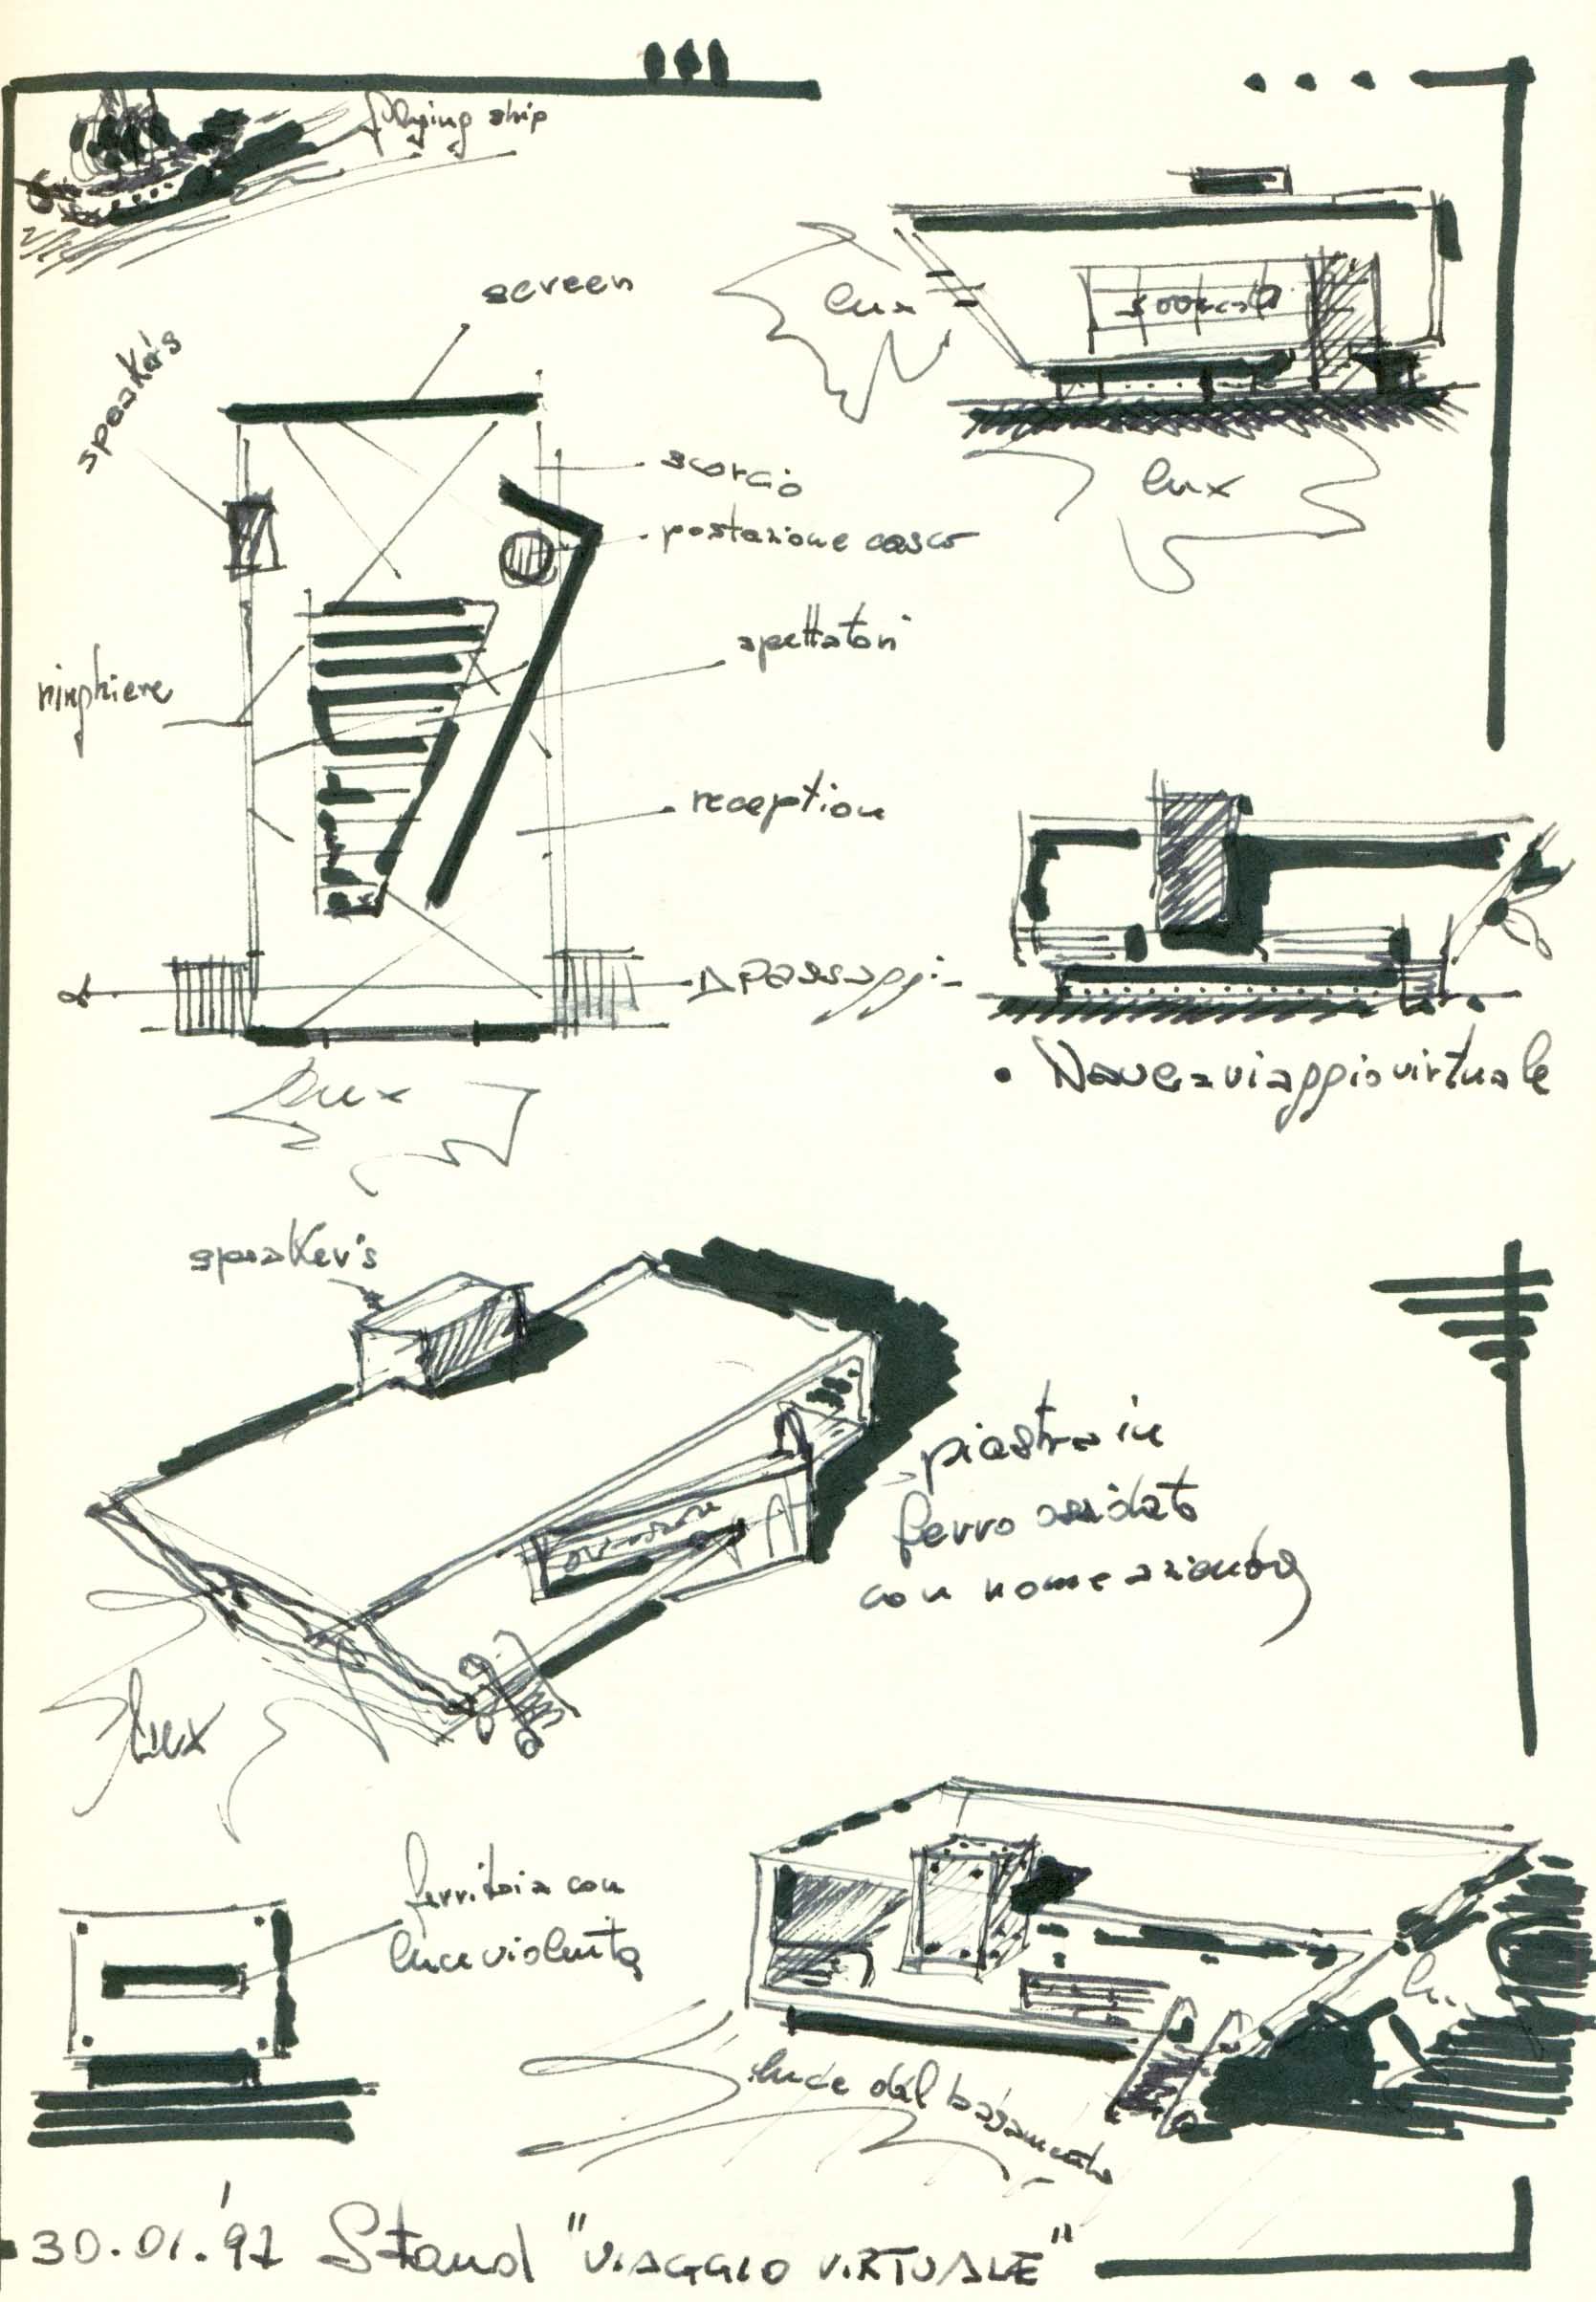 flying ship
screen
speaker's
lux
lux
scorcio
postazione casco
spettatori
ringhiere
reception
passaggi
Nave a viaggio virtuale
lux
speaker's
piastra in
ferro ossidato
con nome azienda
lux
ferritoia con
luce violenta
luce dal basamento
30.01.'97 Stand "VIAGGIO VIRTUALE"